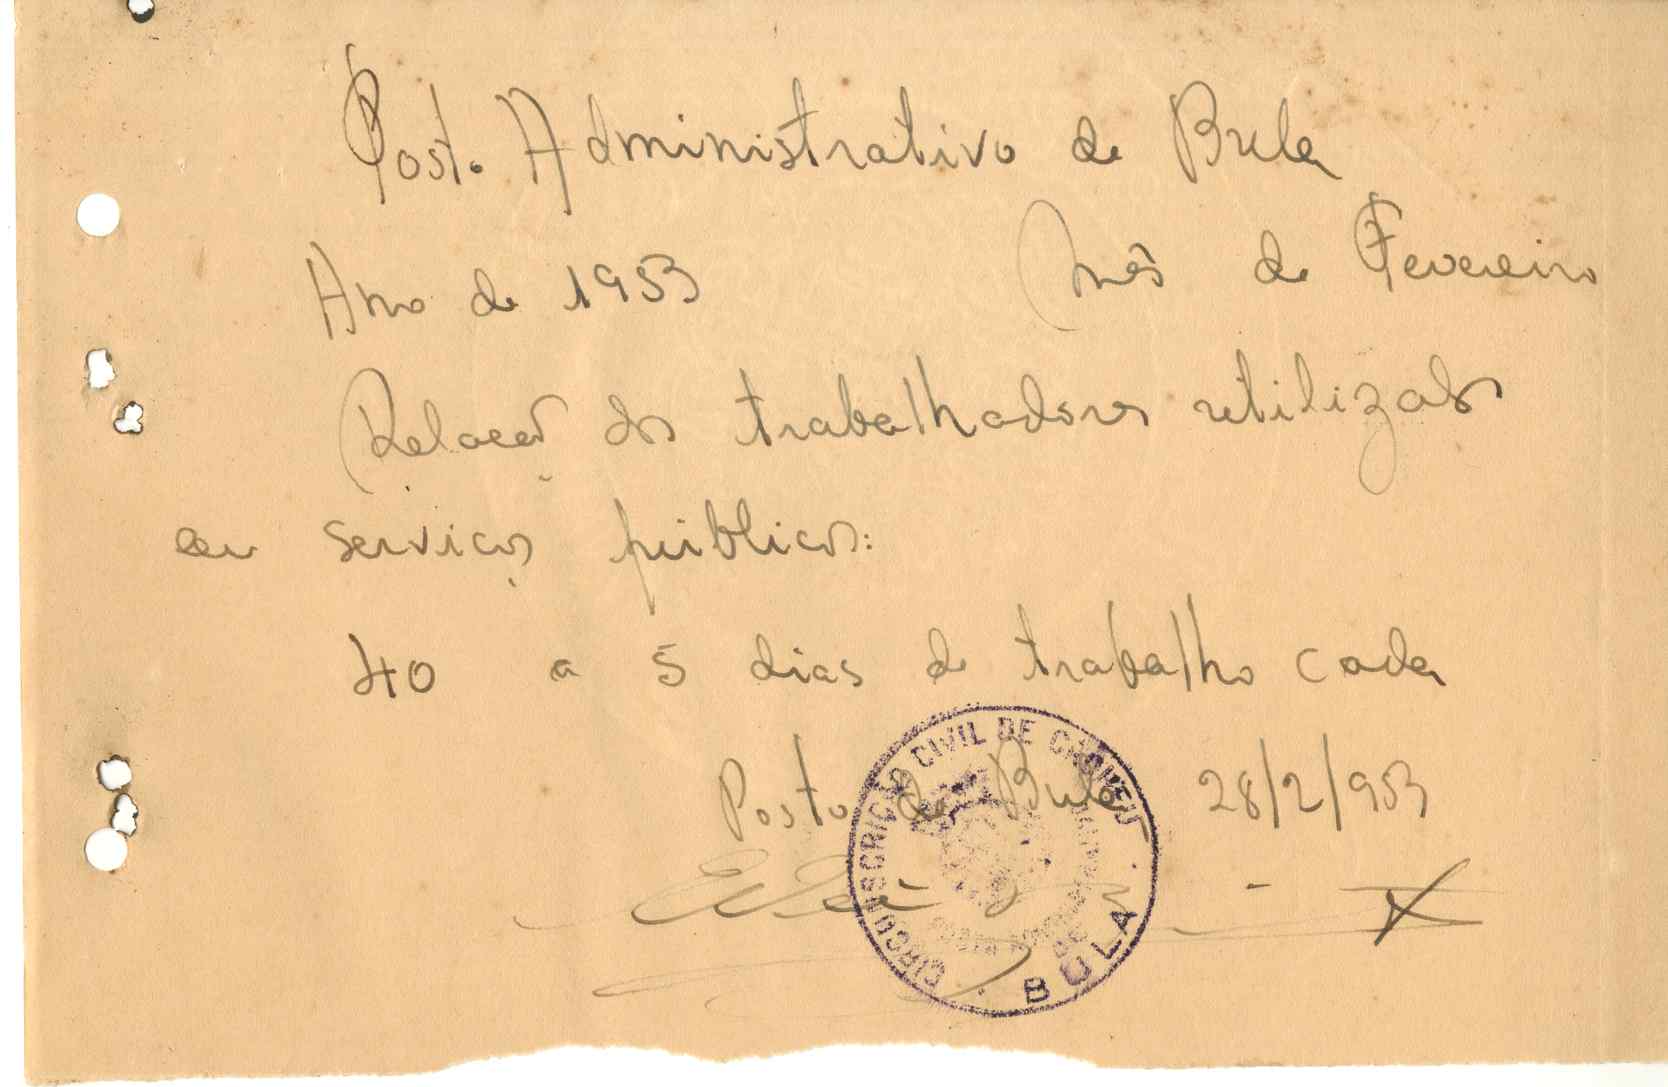 Posto Administrativo de Bula
Ano de 1953 Mês de Fevereiro
Relação dos trabalhadores utilizados
em serviços públicos:
40 a 5 dias de trabalho cada
Posto de Bula 28/2/953
CIRCUNSCRIÇÃO CIVIL DE CACHEU
POSTO ADMINISTRATIVO DE
BULA